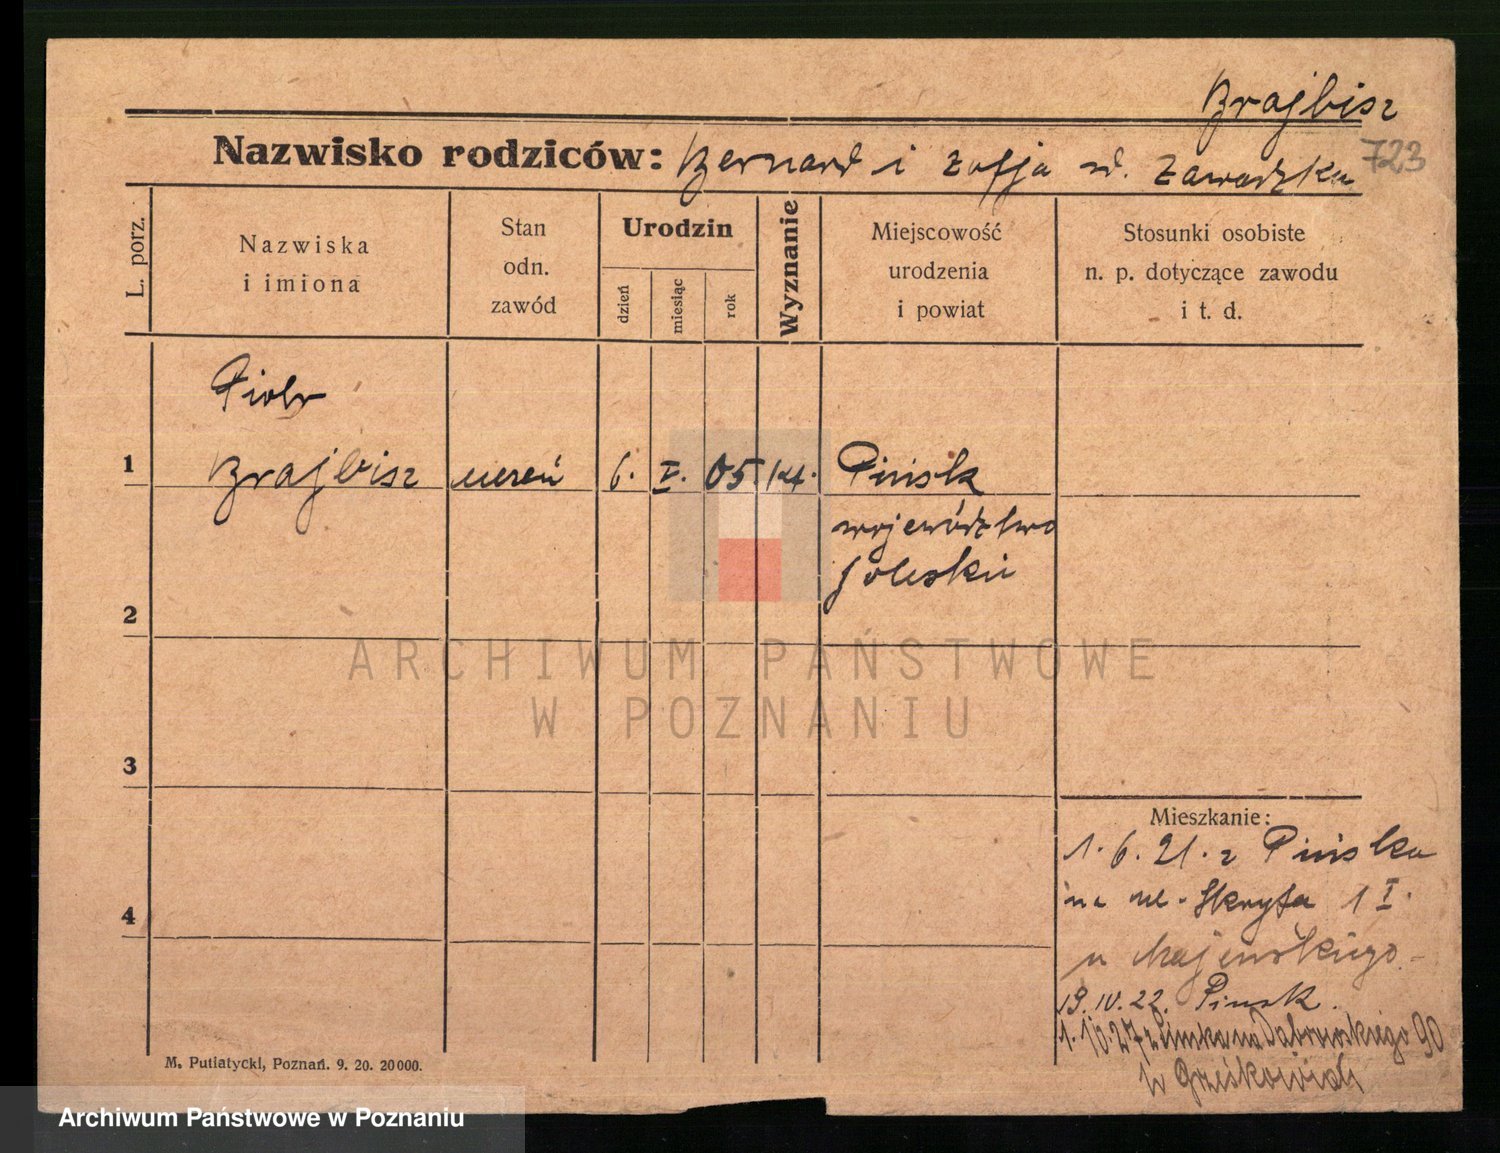 Brajbisz
723
Nazwisko rodziców: Bernard i Zofja z d. Zawadzka
L. porz.
Nazwiska
i imiona
Stan
odn.
zawód
Urodzin
dzień
miesiąc
rok
Wyznanie
Miejscowość
urodzenia
i powiat
Stosunki osobiste
n. p. dotyczące zawodu
i t. d.
Piotr
1 Brajbisz uczeń 6. V. 05. kat. Pińsk
województwo
2
3
4
Mieszkanie:
1. 6. 21. z Pińska
na ul. Skryta 1 I.
u Majewskiego
19. IV. 22. Pinsk.
1. 10. 27 z Pinska na Dabrowskiego 90
u
M. Putiatycki, Poznań. 9. 20. 20000.
ARCHIWUM PAŃSTWOWE
W POZNANIU
Archiwum Państwowe w Poznaniu